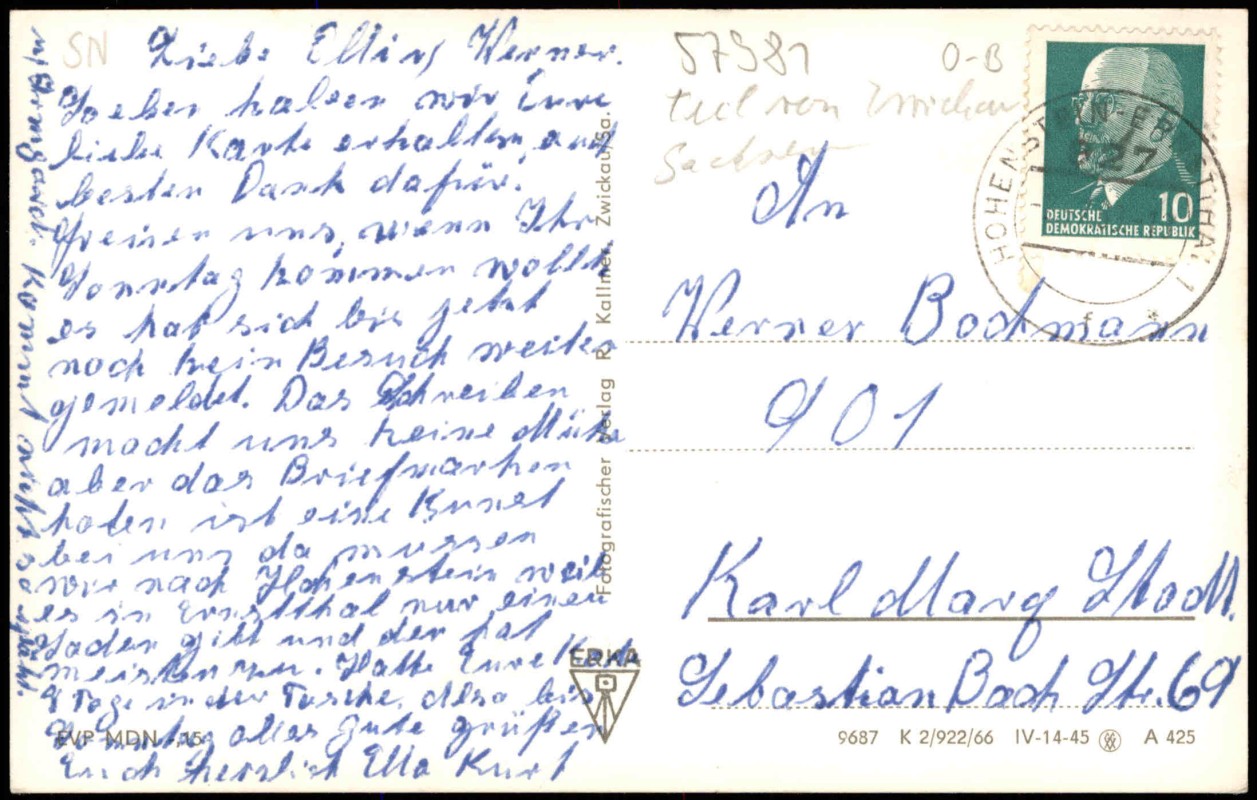 SN
Liebe Elli, Werner.
Soeben haben wir Eure
liebe Karte erhalten, auf
besten Dank dafür.
freuen uns, wenn Ihr
Sonntag kommen wollt
es hat sich bis jetzt
noch kein Besuch weiter
gemeldet. Das Schreiben
macht uns keine Mühe
aber das Briefmarken
holen ist eine Kunst
bei uns da mussen
wir nach Hohenstein weil
es in Ernstthal nur einen
Laden gibt und der hat
meistens zu. Hatte Eure Karte
Tage in der Tasche. Also bis
Sonntag alles Gute grüßen
Euch herzlich Ella Kurt
Kommt nicht so spät.
EVP MDN -,15
Fotografischer Verlag R. Kallmer, Zwickau/Sa.
ERKA
57381
O-B
teil von Zwickau
Sachsen
DEUTSCHE
DEMOKRATISCHE REPUBLIK
10
HOHENSTEIN-ERNSTTHAL 1
327
f
An
Werner Bochmann
901
Karl Marx Stadt
Sebastian Bach Str. 69
9687 K 2/922/66 IV-14-45 A 425